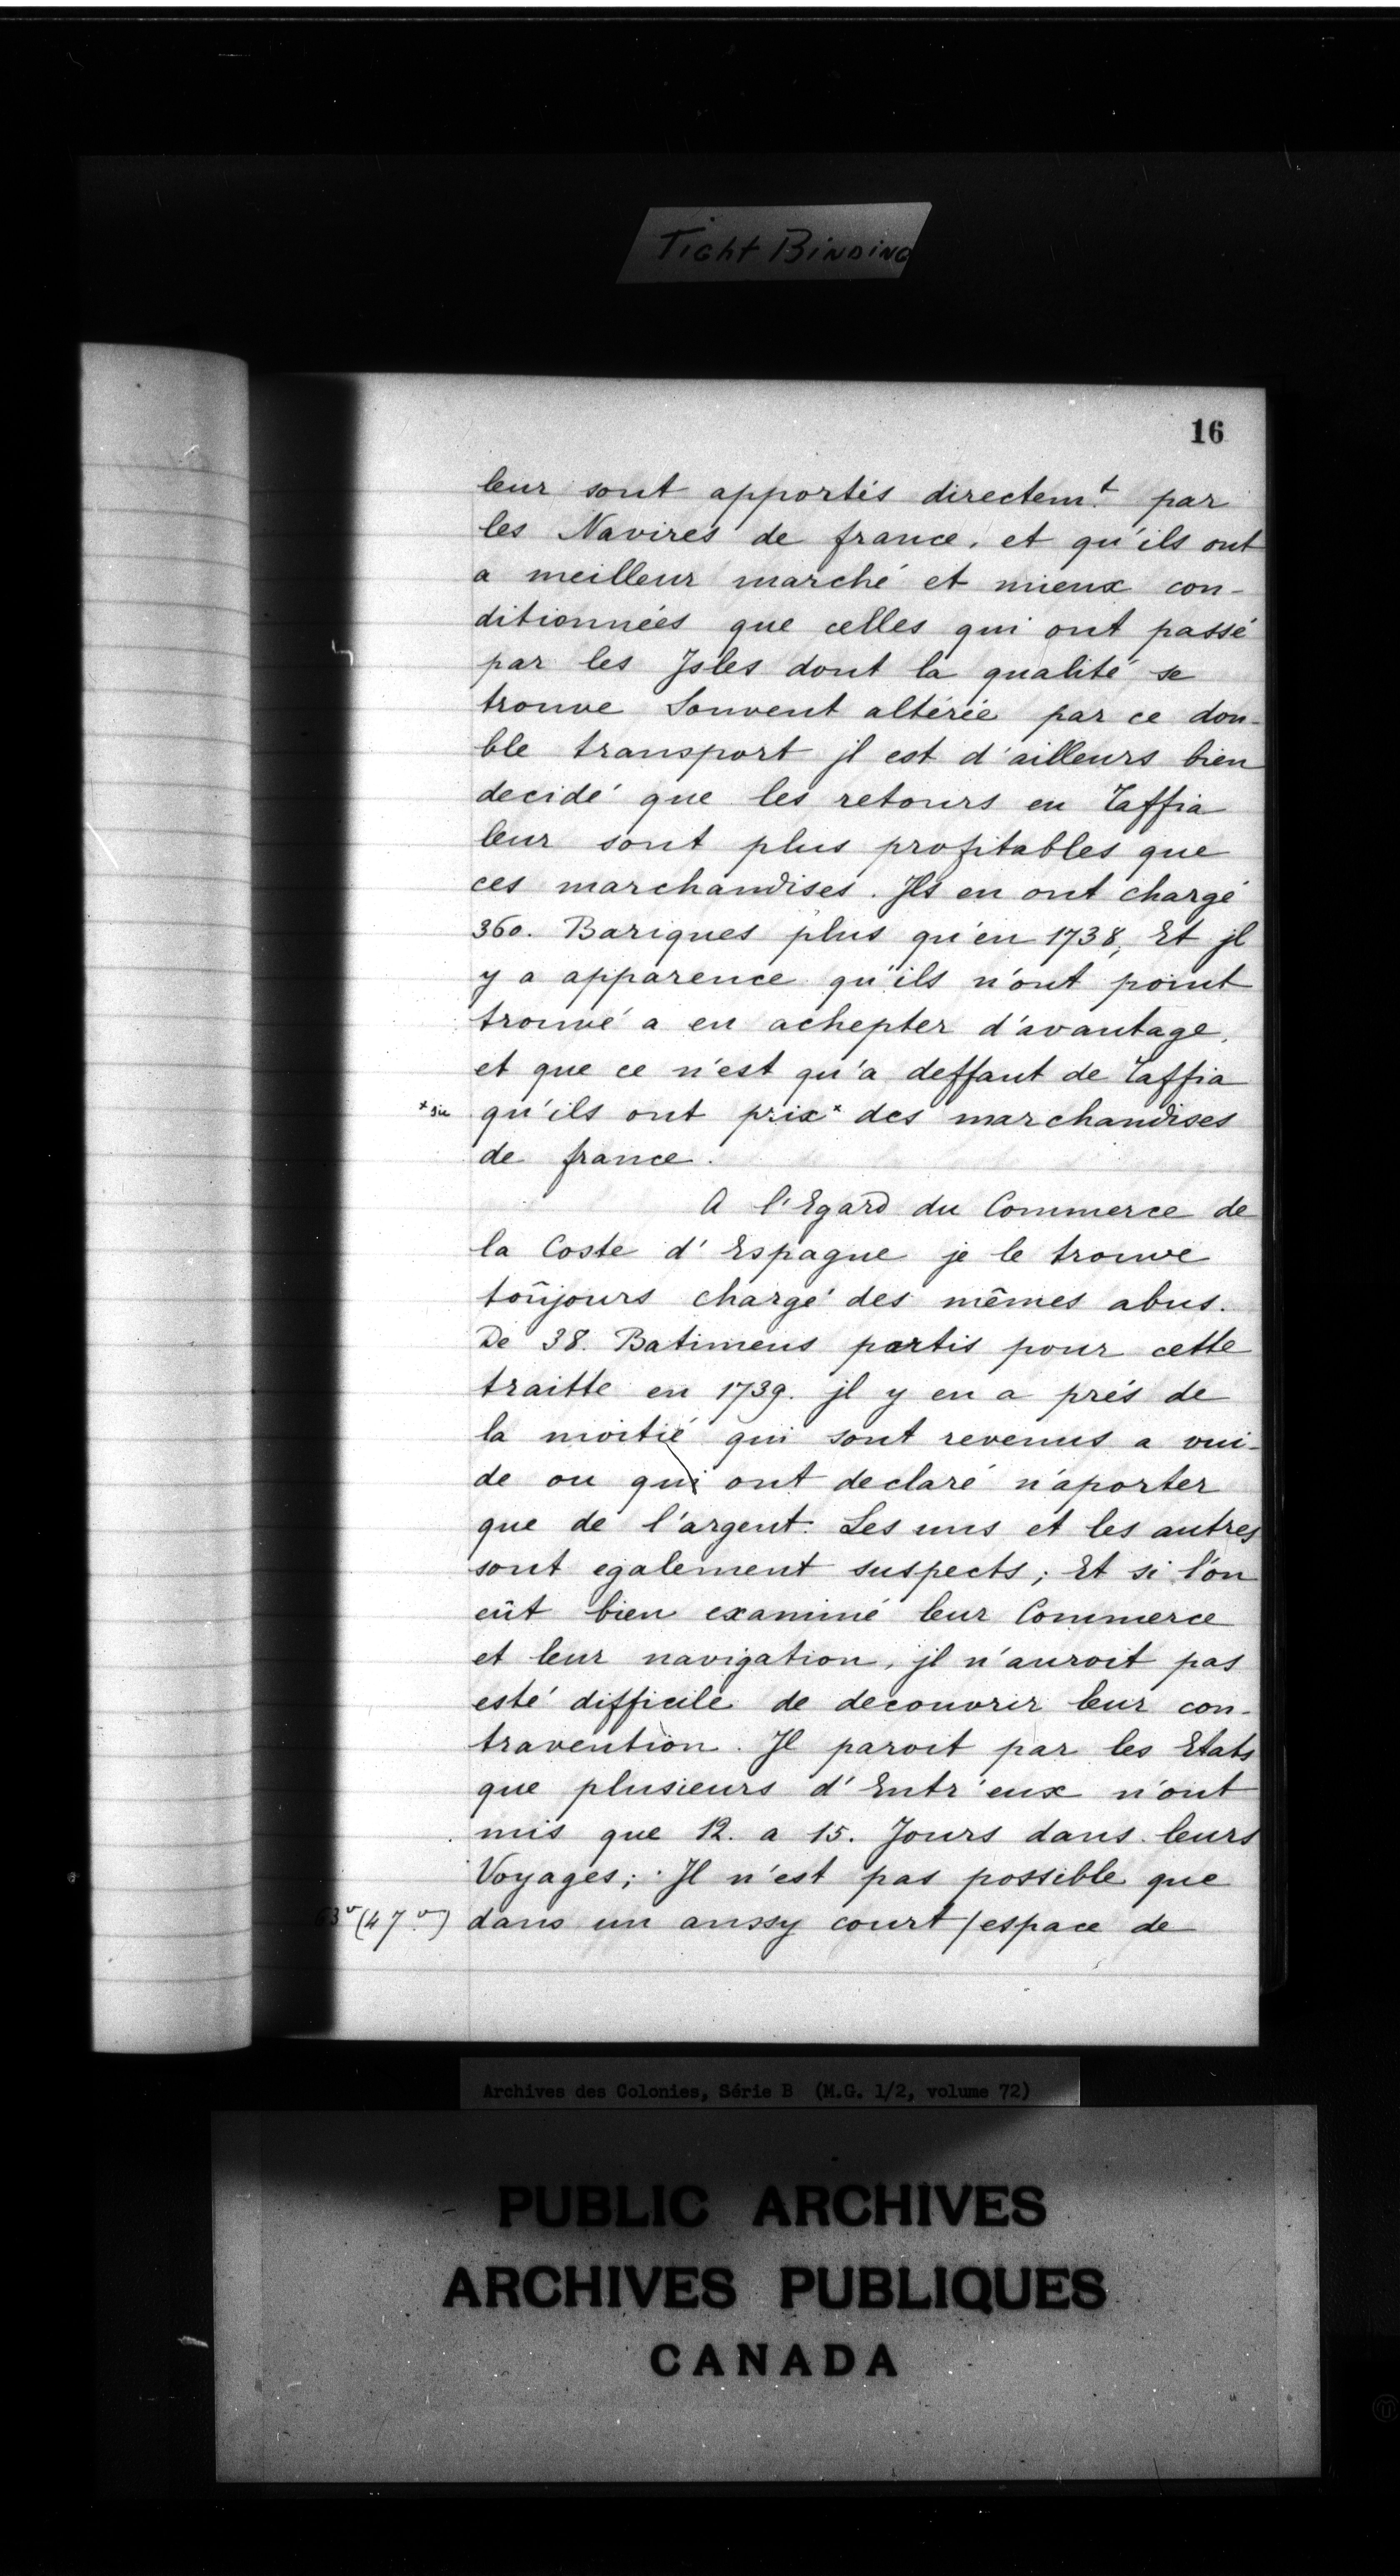 Tight Binding
16
leur sont apportés directem.t par
les Navires de france, et qu'ils ont
a meilleur marché et mieux con-
ditionnées que celles qui ont passé
par les Jsles dont la qualité se
trouve Souvent altérée par ce dou-
ble transport jl est d'ailleurs bien
decidé que les retours en Taffia
leur sont plus profitables que
ces marchandises. Jls en ont chargé
360. Bariques plus qu'en 1738, Et jl
y a apparence qu'ils n'ont point
trouvé a en achepter d'avantage,
et que ce n'est qu'a deffaut de Taffia
* sic qu'ils ont prix* des marchandises
de france.
A l'Egard du Commerce de
la Coste d'Espagne je le trouve
toûjours chargé des mêmes abus.
De 38. Batimens partis pour cette
traitte en 1739. jl y en a prés de
la moitié qui sont revenus a vui-
de ou qui ont declaré n'aporter
que de l'argent. Les uns et les autres
sont egalement suspects; Et si l'on
eût bien examiné leur Commerce
et leur navigation, jl n'auroit pas
esté difficile de decouvrir leur con-
travention. Jl paroit par les Etats
que plusieurs d'Entr'eux n'ont
mis que 12. a 15. Jours dans leurs
Voyages; Jl n'est pas possible que
63v (47.v) dans un aussy court / espace de
Archives des Colonies, Série B (M.G. 1/2, volume 72)
PUBLIC ARCHIVES
ARCHIVES PUBLIQUES
CANADA